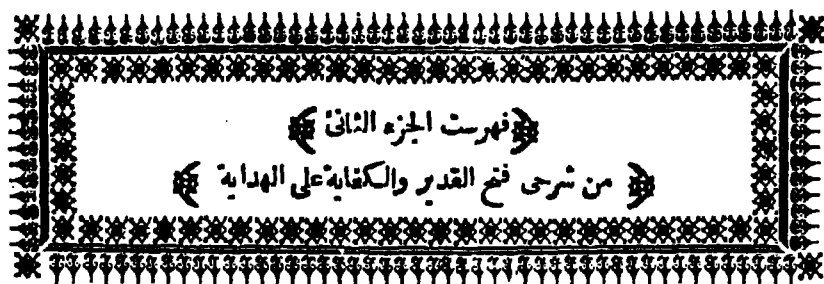 ﴿فهرست الجزء الثاني﴾
﴿من شرحى فتح القدير والكفاية على الهداية﴾